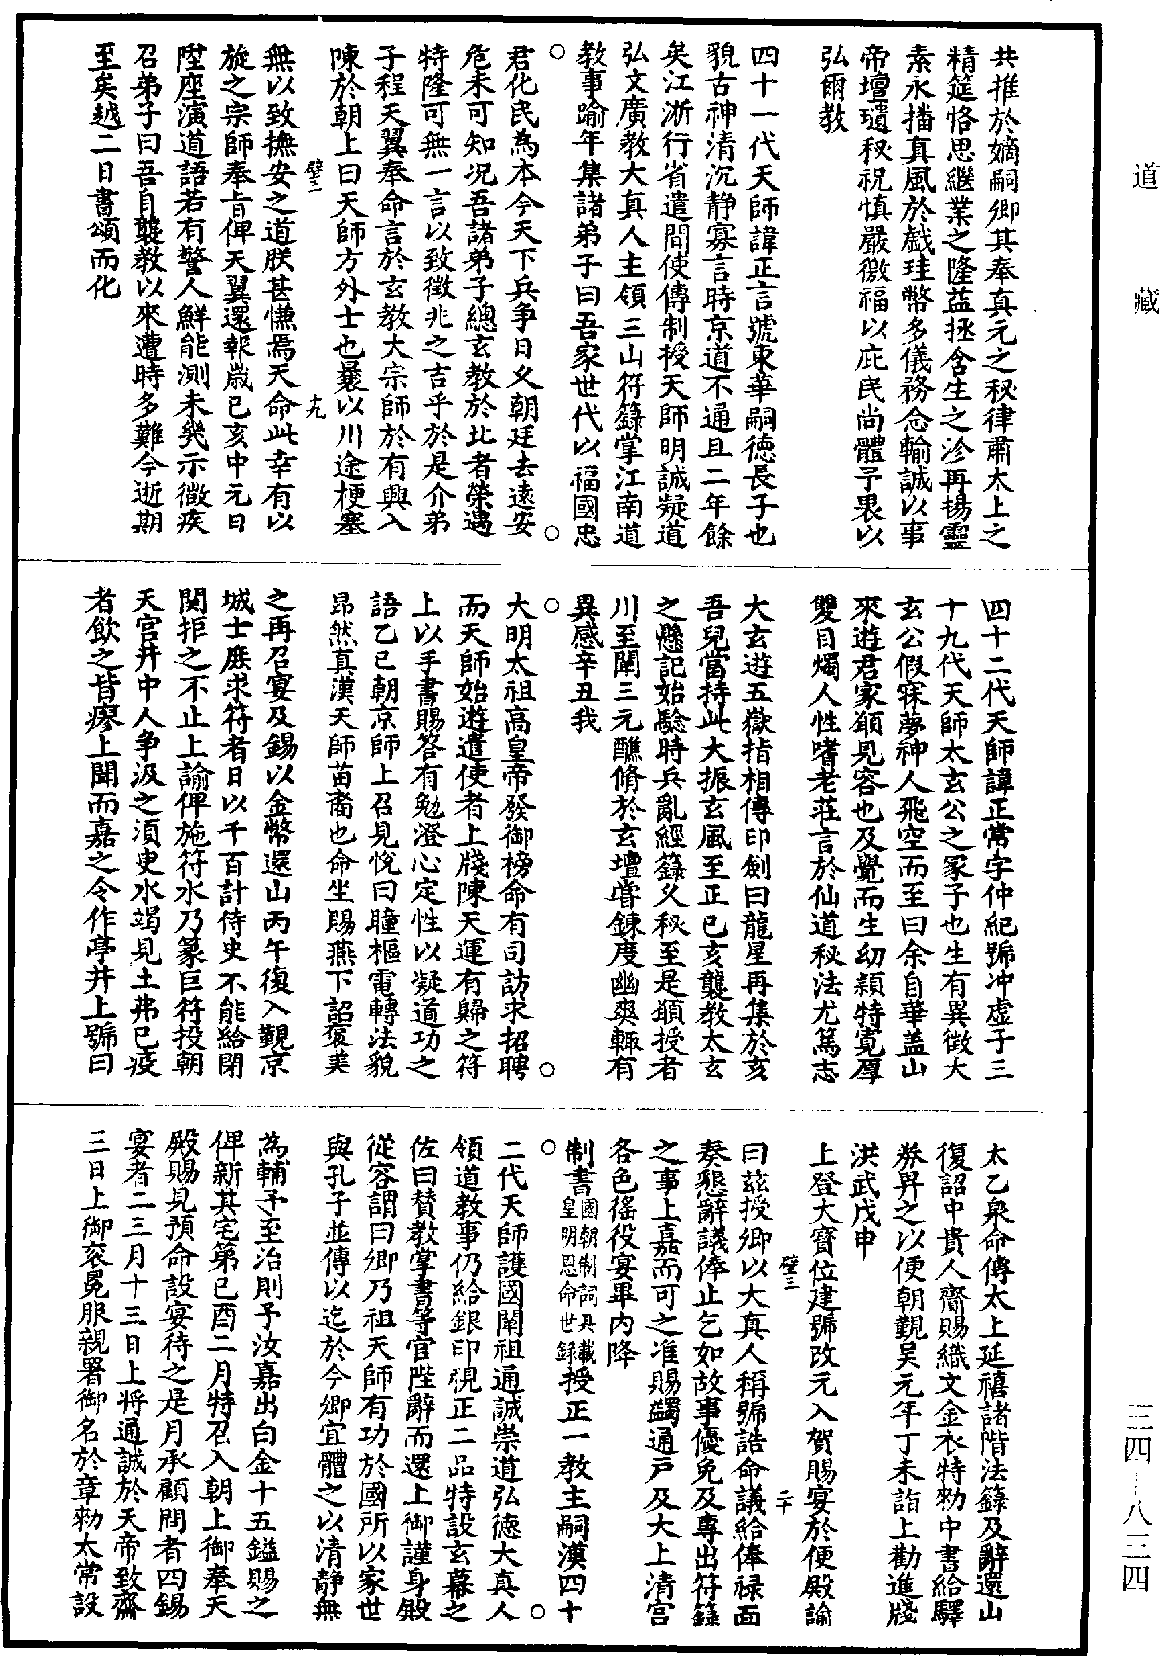 道藏
共推於嫡嗣卿其奉真元之秘律肅太上之
精筵恪思繼業之隆益拯含生之沴再揚靈
素永播真風於戲珪幣多儀務念輸誠以事
帝壇璡秘祝慎嚴徼福以庇民尚體予衷以
弘爾教
四十一代天師諱正言號東華嗣德長子也
貌古神清沉静寡言時京道不通且二年餘
矣江浙行省遣間使傳制授天師明誠凝道
弘文廣教大真人主領三山符籙掌江南道
教事踰年集諸弟子曰吾家世代以福國忠
君化民為本今天下兵争日乂朝廷去遠安
危未可知况吾諸弟子總玄教於北者榮遇
特隆可無一言以致徵兆之吉乎於是介弟
子程天翼奉命言於玄教大宗師於有興入
陳於朝上曰天師方外士也曩以川途梗塞
壁二 十九
無以致撫安之道朕甚慊焉天命此幸有以
旋之宗師奉旨俾天翼還報歲已亥中元日
陞座演道語若有警人鮮能測未幾示微疾
召弟子曰吾自襲教以來遭時多難今逝期
至矣越二日書頌而化
四十二代天師諱正常字仲紀號冲虚子三
十九代天師太玄公之冢子也生有異徵大
玄公假寐夢神人飛空而至曰余自華盖山
來遊君家願見容也及覺而生幼穎特寛厚
雙目燭人性嗜老莊言於仙道秘法尤篤志
大玄遊五嶽指相傳印劍曰龍星再集於亥
吾兒當持此大振玄風至正已亥襲教太玄
之懸記始驗時兵亂經籙乂秘至是願授者
川至闡三元醮脩於玄壇甞鍊度幽爽輙有
異感辛丑我
大明太祖高皇帝發御榜命有司訪求招聘
而天師始遊遣使者上牋陳天運有歸之符
上以手書賜答有勉澄心定性以凝道功之
語乙巳朝京師上召見悦曰瞳樞電轉法貌
昂然真漢天師苗裔也命坐賜燕下詔褒美
之再召宴及錫以金幣還山丙午復入覲京
城士庶求符者日以千百計侍史不能給閉
関拒之不止上諭俾施符水乃篆巨符投朝
天宫井中人争汲之湏臾水竭見土弗已疫
者飲之皆瘳上聞而嘉之令作亭井上號曰
太乙泉命傳太上延禧諸階法籙及辭還山
復詔中貴人齎賜織文金衣特勅中書給驛
券昇之以便朝覲吴元年丁未詣上勸進牋
洪武戊申
上登大寳位建號改元入賀賜宴於便殿諭
壁三 二十
曰兹授卿以大真人稱號誥命議給俸禄面
奏懇辭議俸止乞如故事優免及專出符籙
之事上嘉而可之准賜蠲通户及大上清宫
各色徭役宴畢内降
制書國朝制詞具載皇明恩命世録授正一教主嗣漢四十
二代天師護國闡祖通誠崇道弘德大真人
領道教事仍給銀印視正二品特設玄幕之
佐曰賛教掌書等官陛辭而還上御謹身殿
從容謂曰卿乃祖天師有功於國所以家世
與孔子並傳以迄於今卿宜體之以清静無
為輔予至治則予汝嘉出白金十五鎰賜之
俾新其宅第已酉二月特召入朝上御奉天
殿賜見預命設宴待之是月承顧問者四錫
宴者二三月十三日上將通誠於天帝致齋
三日上御衮冕服親署御名於章勅太常設
三四-八三四